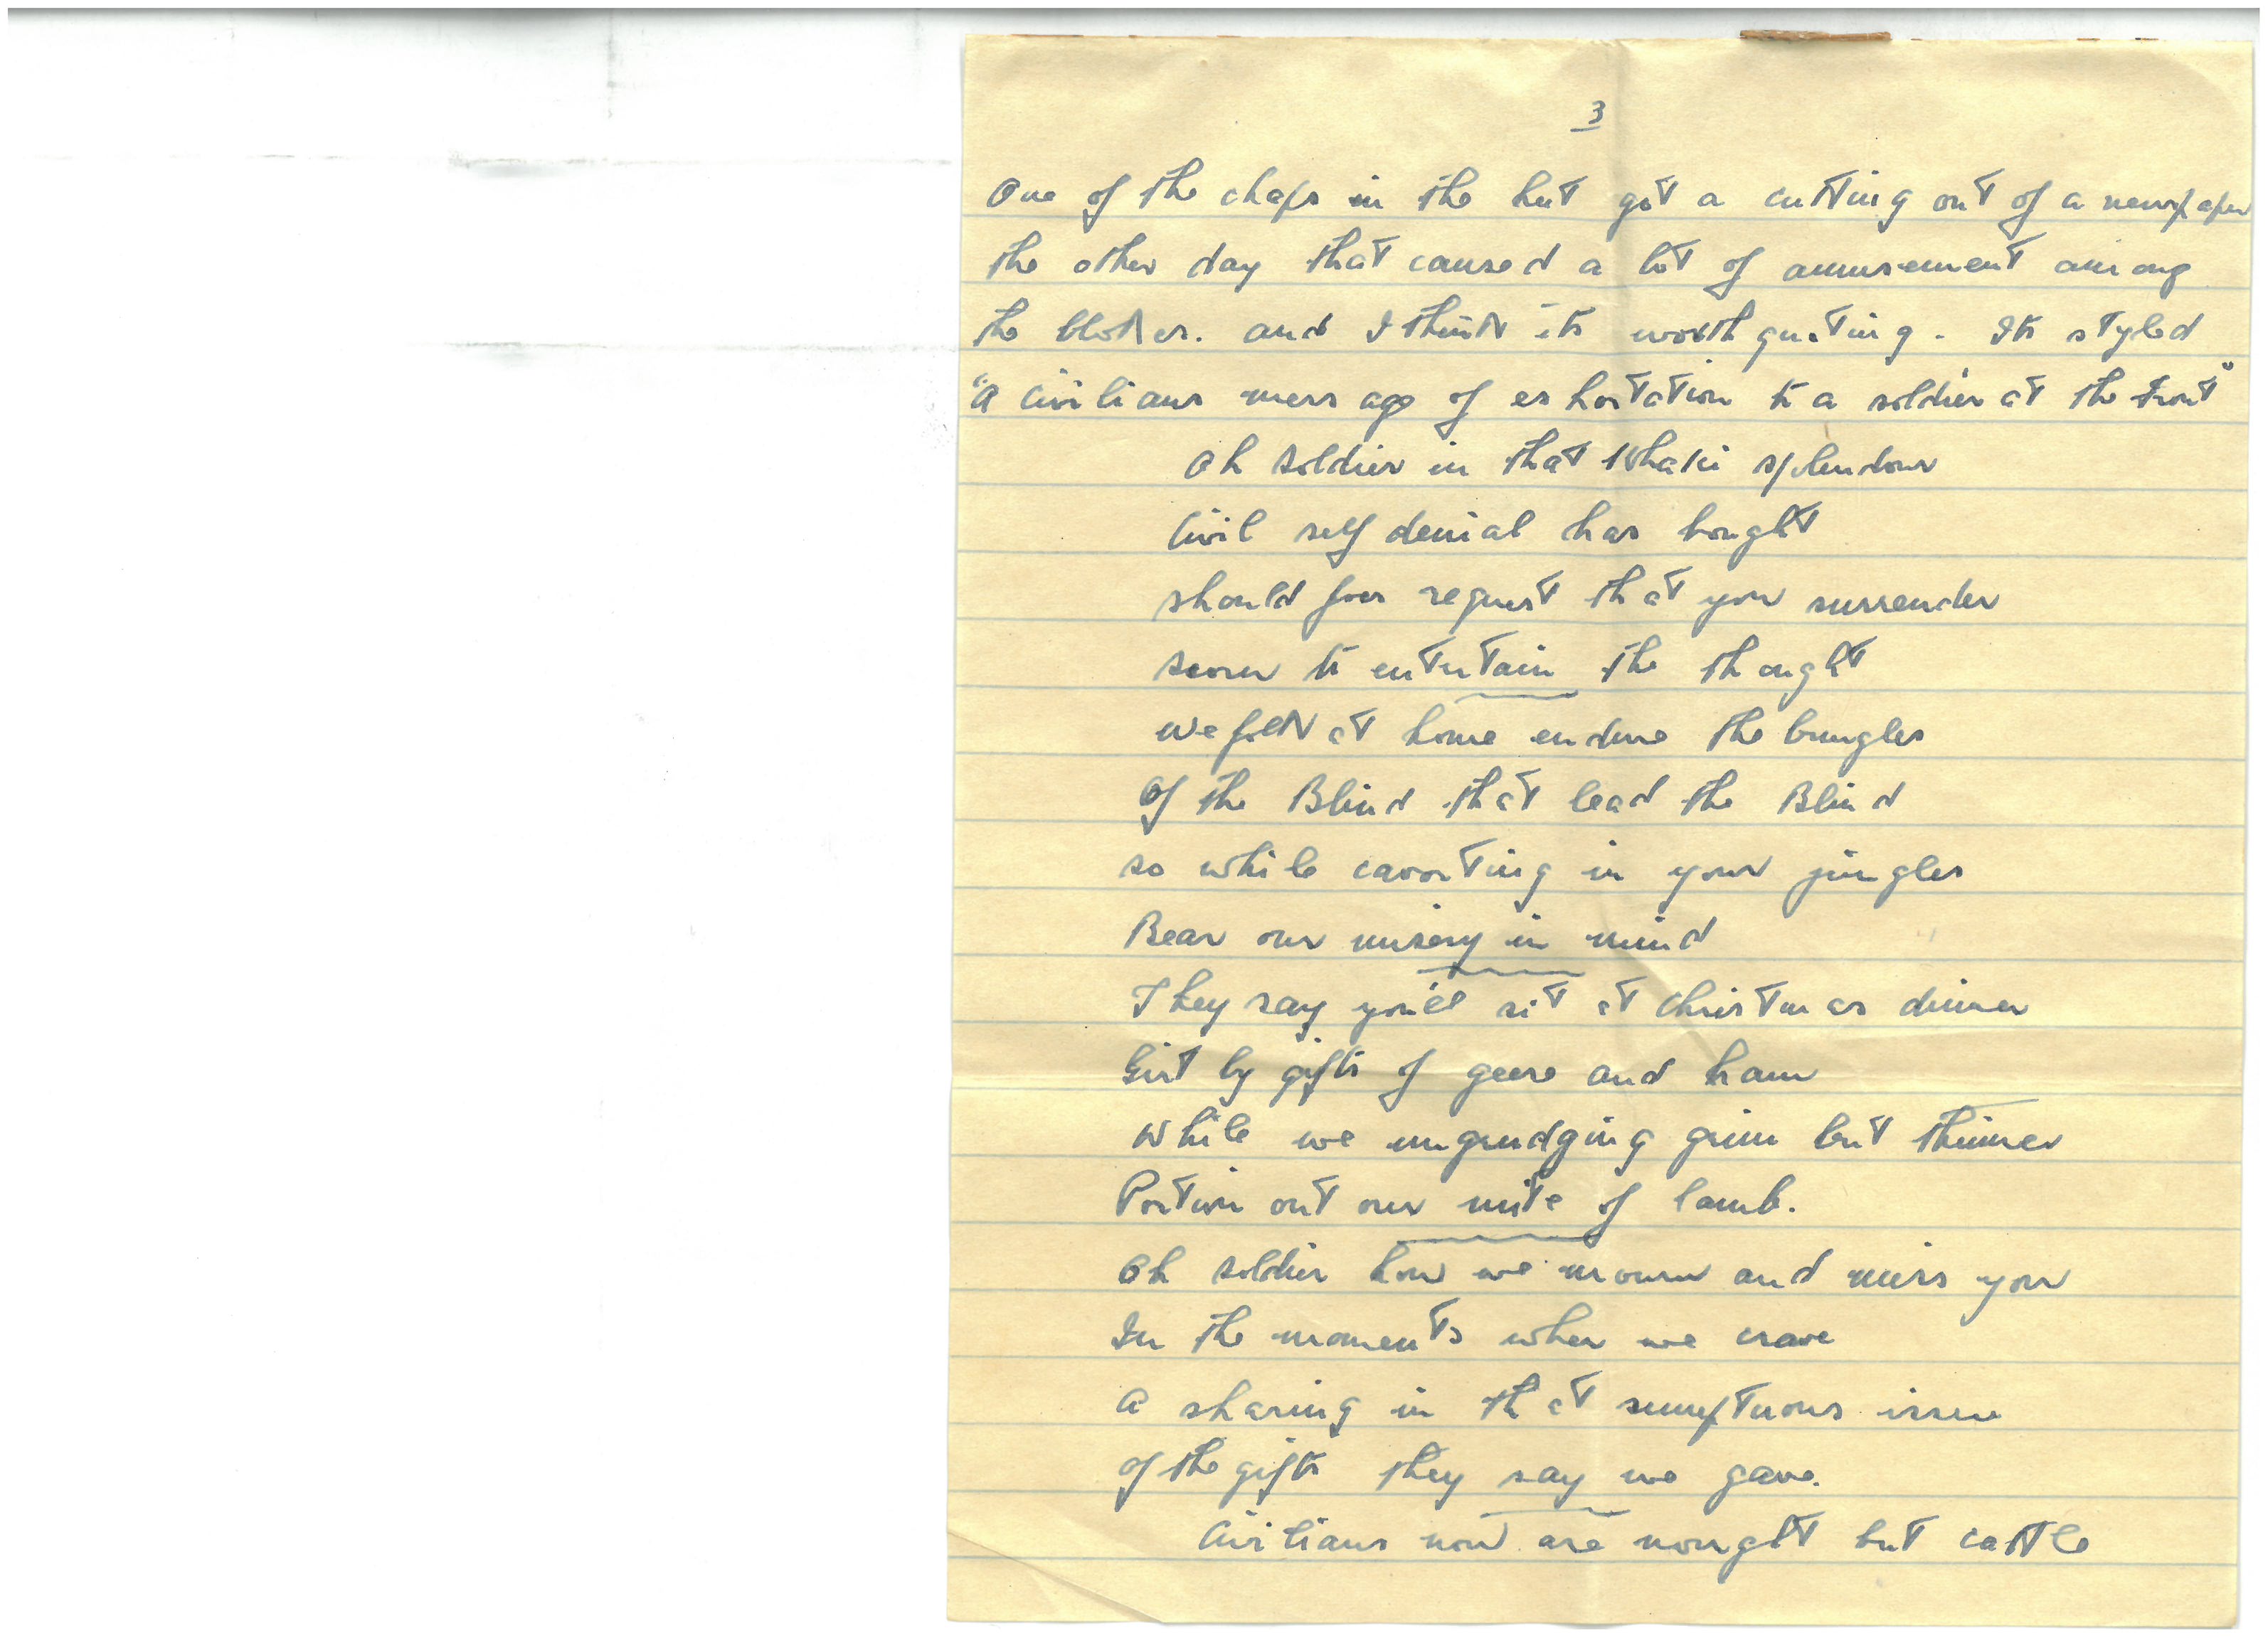 3
One of the chaps in the hut got a cutting out of a newspaper
the other day that caused a lot of amusement among
the blokes. and I think its worth quoting. Its styled
"A Civilians message of exhortation to a soldier at the front"
Oh soldier in that khaki splendour
Civil self denial has bought
should foes request that you surrender
scorn to entertain the thought
we folk at home endure the bungles
Of the Blind that lead the Blind
so while cavorting in your jungles
Bear our misery in mind
They say you'll sit at Christmas dinner
Girt by gifts of geese and ham
While we ungrudging grim but thinner
Portion out our mite of lamb.
Oh soldier how we mourn and miss you
In the moments when we crave
A sharing in that sumptuous issue
of the gifts they say we gave.
Civilians now are nought but cattle